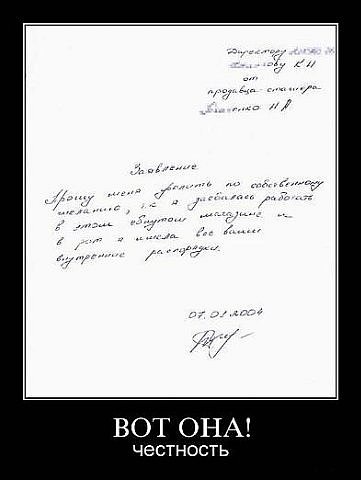 Директору
К И
от
продавца-стажера
енко Н А
Заявление
Прошу меня уволить по собственному
желанию, т.к я заебалась работать
в этом ебнутом магазине и
в рот я имела все ваши
внутренние распорядки.
07.01 2004
ВОТ ОНА!
честность